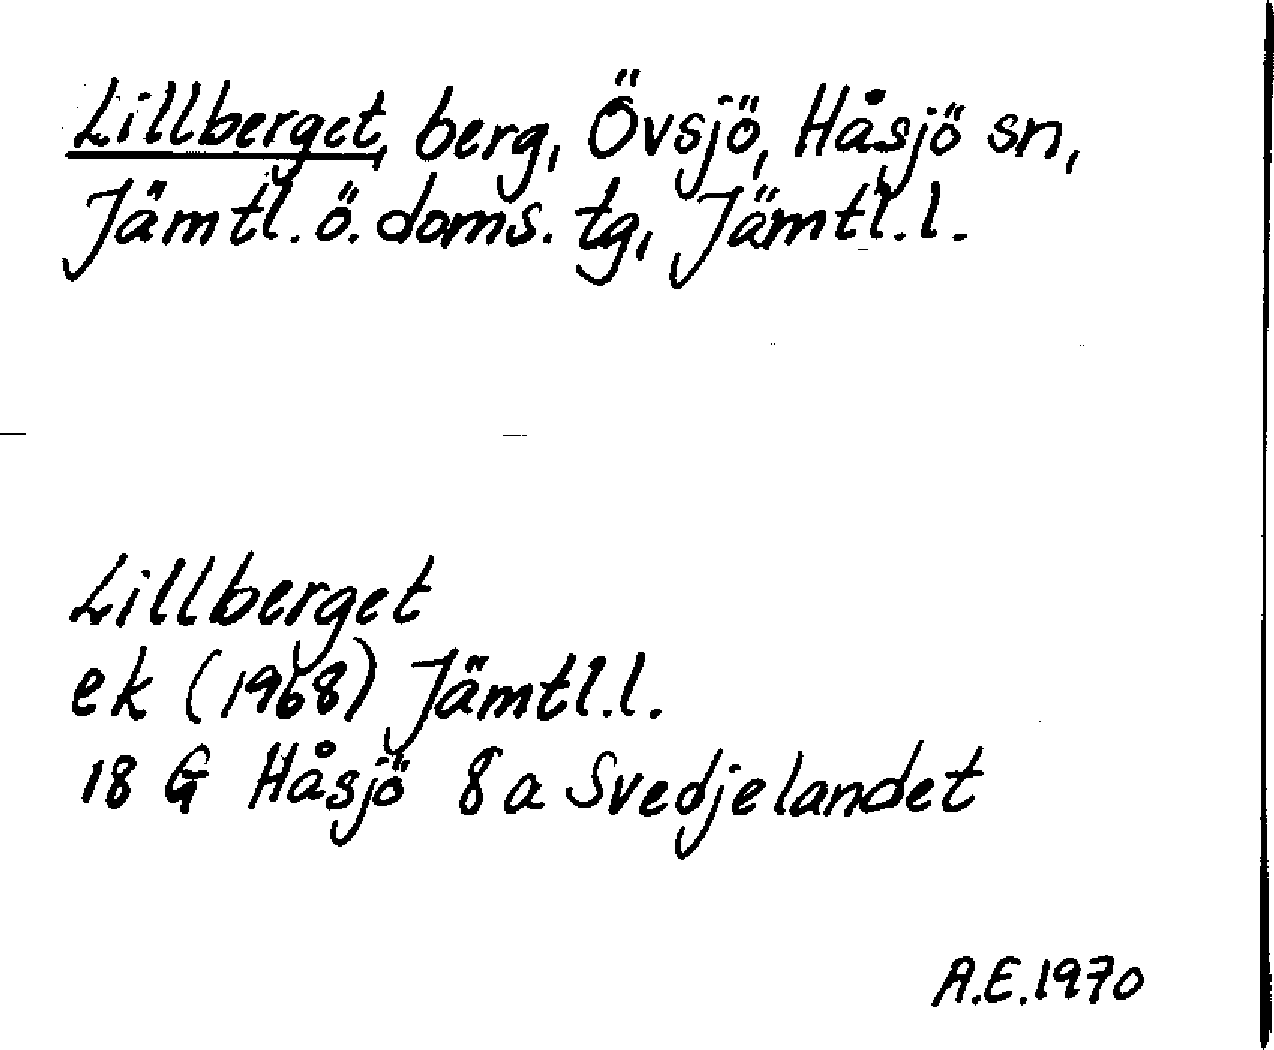 Lillberget, berg, Övsjö, Håsjö sn,
Jämtl. ö. doms. tg, Jämtl. l.
Lillberget
ek (1968) Jämtl. l.
18 G Håsjö 8 a Svedjelandet
A.E. 1970